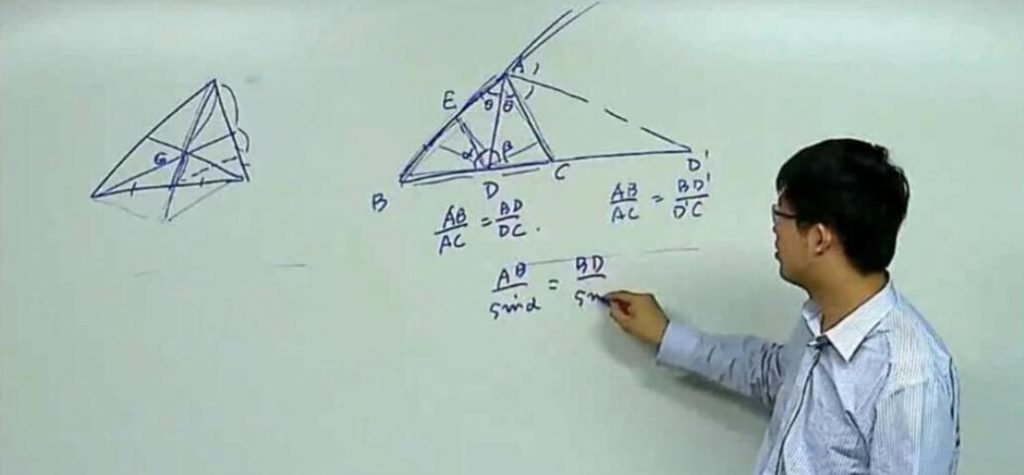 A
E
θ θ
G
α β
B D C D'
AB/AC = BD/DC. AB/AC = BD'/D'C
AB/sin α = BD/sin